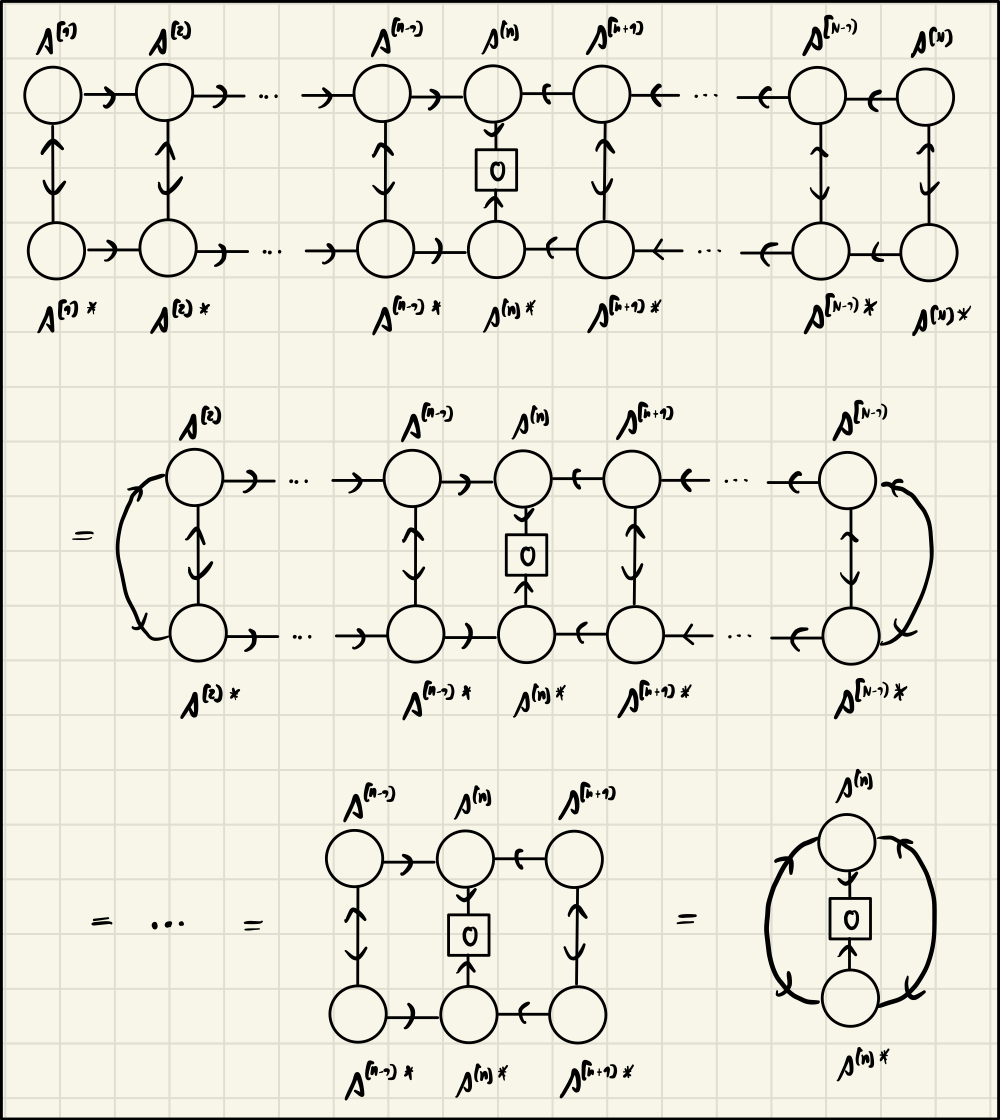 A[1] A[2] A[n-1] A[n] A[n+1] A[N-1] A[N]
... ...
O
... ...
A[1]* A[2]* A[n-1]* A[n]* A[n+1]* A[N-1]* A[N]*
A[2] A[n-1] A[n] A[n+1] A[N-1]
... ...
= O
... ...
A[2]* A[n-1]* A[n]* A[n+1]* A[N-1]*
A[n-1] A[n] A[n+1] A[n]
= ... = O = O
A[n-1]* A[n]* A[n+1]* A[n]*